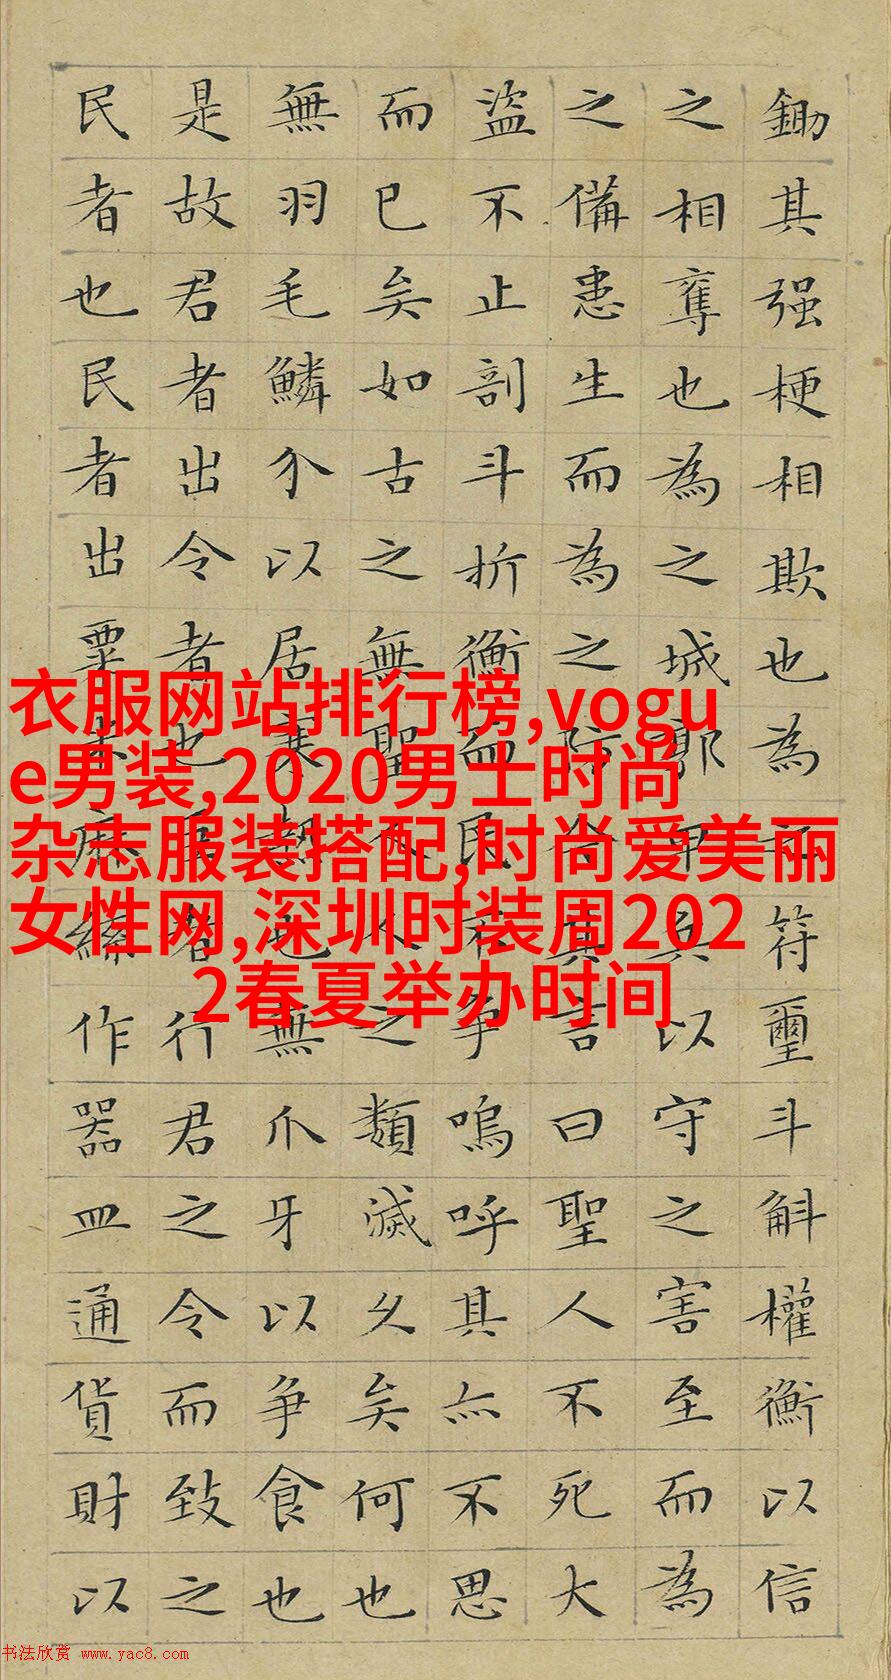 鋤其强梗相欺也為之符璽斗斛權衡以信
之相奪也為之城郭甲兵以守之害至而為
之備患生而為之防今其言曰聖人不死大
盜不止剖斗折衡而民不爭嗚呼其亦不思
而已矣如古之無聖人人之類滅久矣何也
無羽毛鱗介以居寒熱也無爪牙以爭食也
是故君者出令者也臣者行君之令而致之
民者也民者出粟米麻絲作器皿通貨財以
衣服网站排行榜,vogu
e男装,2020男士时尚
杂志服装搭配,时尚爱美丽
女性网,深圳时装周202
2春夏举办时间
书法欣赏 www.yac8.com